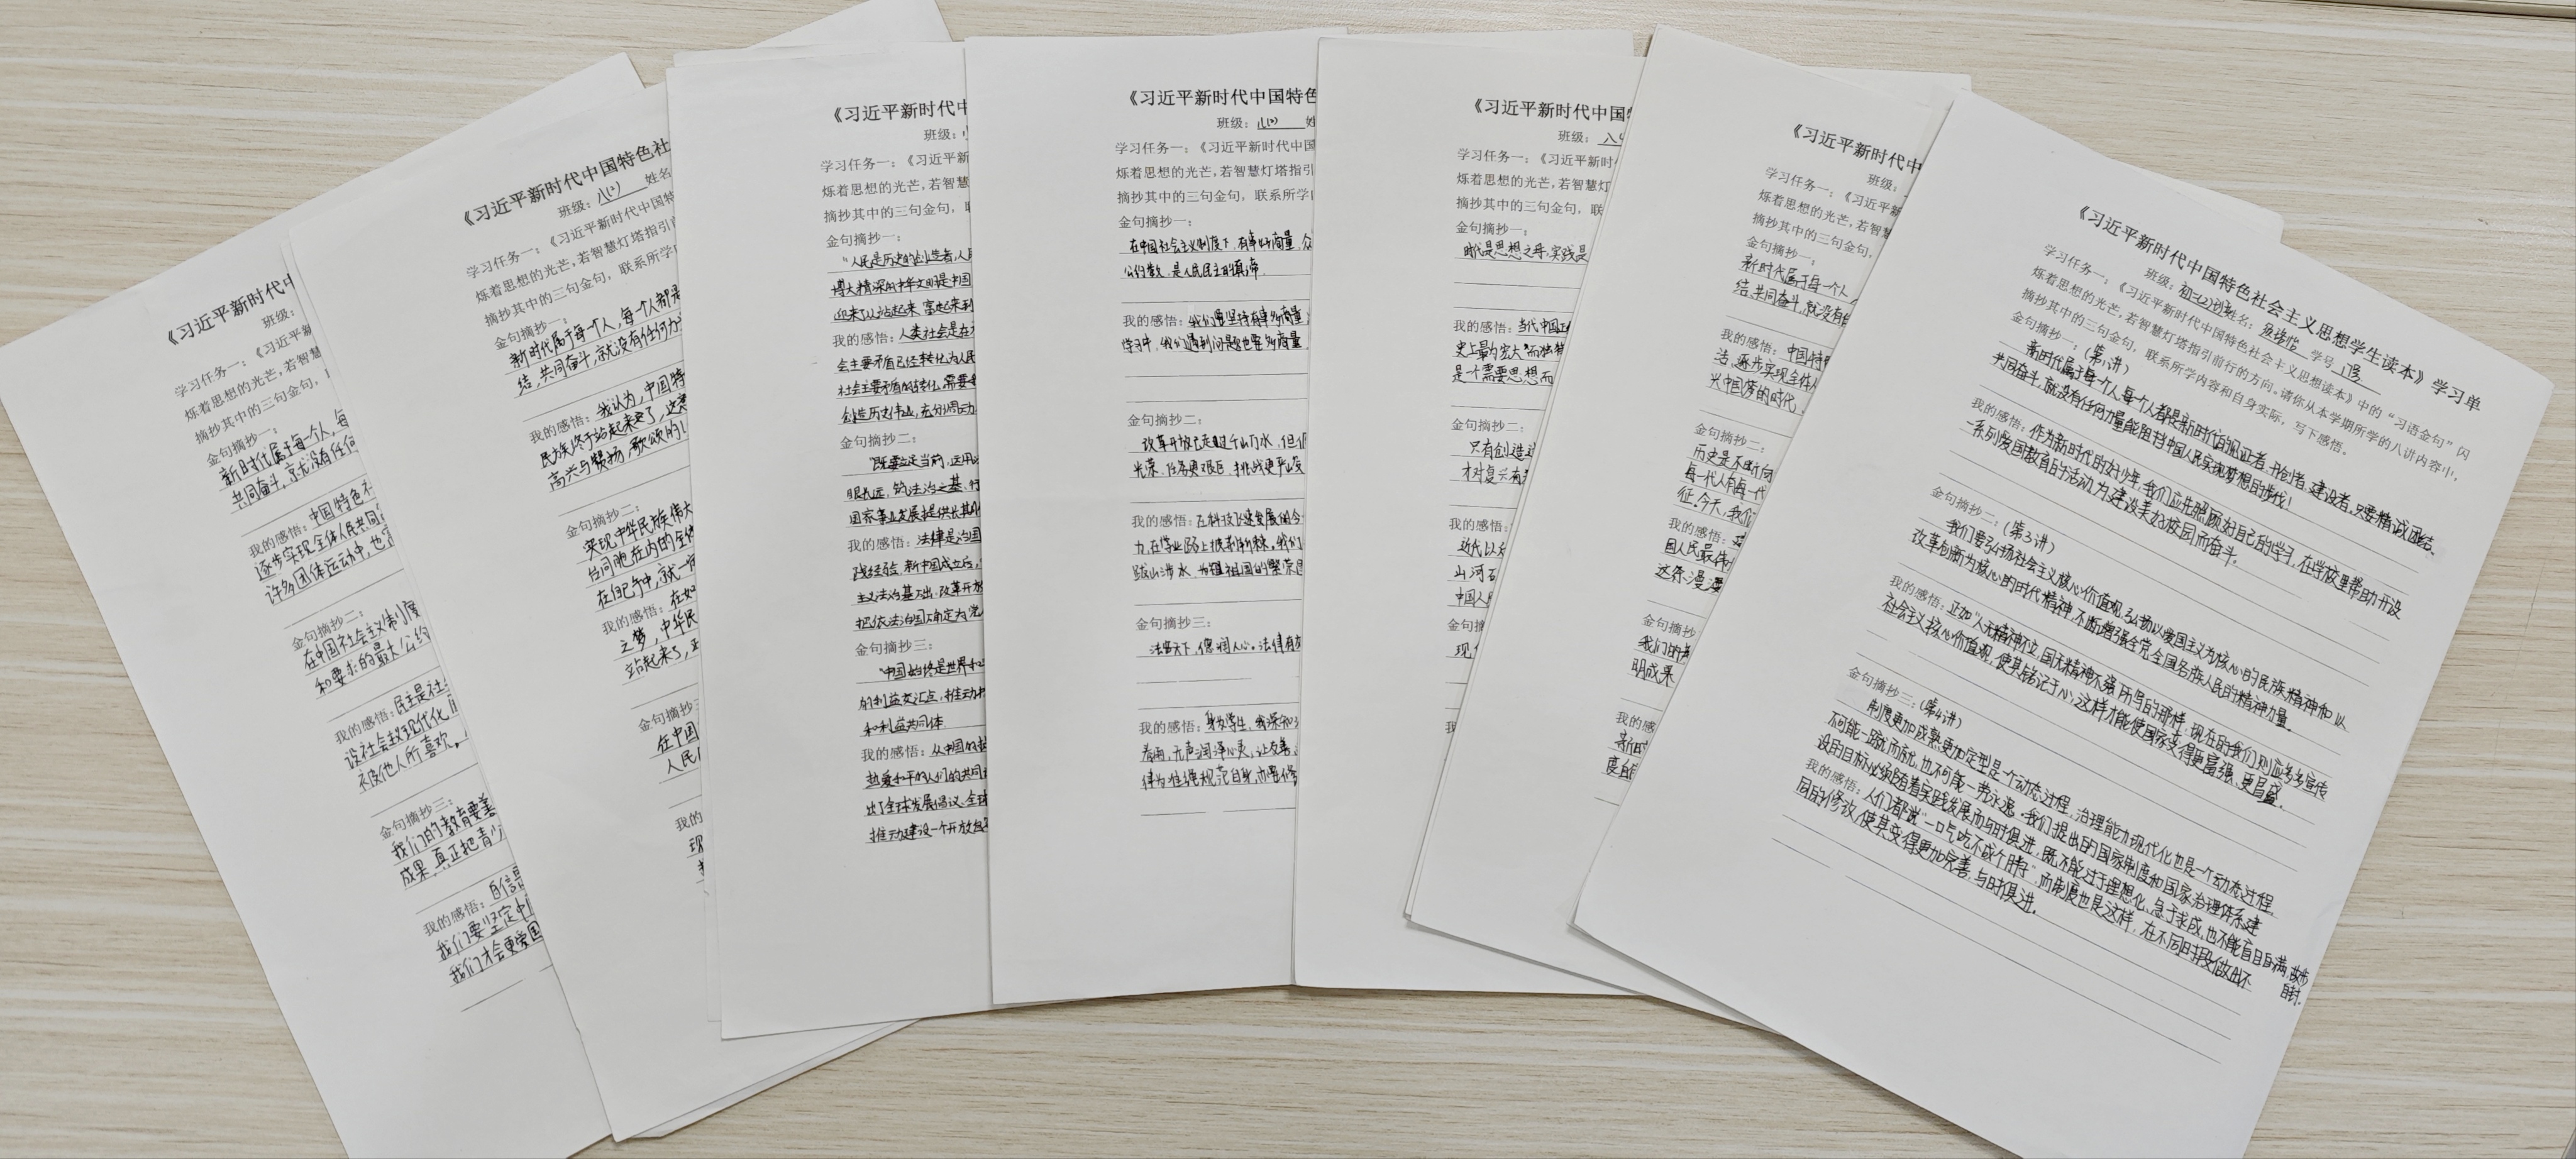 《习近平新时代中
班级：
学习任务一：《习近平新
烁着思想的光芒，若智慧
摘抄其中的三句金句，
金句摘抄一：
新时代属于每一个人，每
共同奋斗，就没有任何
我的感悟：中国特色
逐步实现全体人民共同
许多团体运动中，也
金句摘抄二：
在中国社会主义制度
和要求的最大公约
我的感悟：民主是社
设社会主义现代化
被他人所喜欢，
金句摘抄三：
我们的教育要善
成果，真正把青少
我的感悟：自信
我们要坚定中
我们才会更爱国
《习近平新时代中国特色社
班级：八(1) 姓名
学习任务一：《习近平新时代中国特
烁着思想的光芒，若智慧灯塔指引
摘抄其中的三句金句，联系所学
金句摘抄一：
新时代属于每一个人，每一个人都是
结，共同奋斗，就没有任何力
我的感悟：我认为，中国特
民族终于站起来了，这是
高兴与赞扬，歌颂的！
金句摘抄二：
实现中华民族伟大
台同胞在内的全体
在自己手中，就一定
我的感悟：在如
之梦，中华民
站起来了，
金句摘抄三
在中国
人民
我的
《习近平新时代中
班级：
学习任务一：《习近平新
烁着思想的光芒，若智慧
摘抄其中的三句金句，
金句摘抄一：
“人民是历史的创造者，人民
博大精深的中华文明是中国
迎来了从站起来、富起来到
我的感悟：人类社会是在
会主要矛盾已经转化为人民
社会主要矛盾的转化，需要
创造历史伟业，充分调动
金句摘抄二：
“既要立足当前，运用
眼长远，筑法治之基、行
国家事业发展提供长期
我的感悟：法律是治国
践经验，新中国成立后，
主义法治基础，改革开放
把依法治国确定为党
金句摘抄三：
“中国始终是世界和
的利益交汇点，推动
和利益共同体
我的感悟：从中国的
热爱和平的人们的共同
出了全球发展倡议、全球
推动建设一个开放包
《习近平新时代中国特色
班级：八(2) 姓
学习任务一：《习近平新时代中
烁着思想的光芒，若智慧灯塔指
摘抄其中的三句金句，联系所学
金句摘抄一：
在中国社会主义制度下，有事好商量，众
公约数，是人民民主的真谛
我的感悟：我们要坚持有事多商量
学习中，我们遇到问题也要多商量
金句摘抄二：
改革开放已走过千山万水，但仍
光荣、任务更艰巨、挑战更严峻
我的感悟：在科技飞速发展的今
力，在学业路上披荆斩棘。我们
跋山涉水，为祖国的繁荣
金句摘抄三：
法安天下，德润人心。法律有
我的感悟：身为学生，我深知
春雨，无声润泽心灵，让友善
律为准绳规范自身，
《习近平新时代中国
班级：八
学习任务一：《习近平新时
烁着思想的光芒，若智慧灯
摘抄其中的三句金句，联
金句摘抄一：
时代是思想之母，实践是
我的感悟：当代中国正
史上最为宏大而独特
是一个需要思想而
金句摘抄二：
只有创造过
才对复兴有
我的感悟：
近代以
山河
中国人
金句摘
现
《习近平新时代中
班级：
学习任务一：《习近平新
烁着思想的光芒，若智
摘抄其中的三句金句，
金句摘抄一：
新时代属于每一个人
结、共同奋斗，就没有
我的感悟：中国特
洁，逐步实现全体
兴中国梦的时代，
金句摘抄二：
历史是不断向
每一代人有每一代
征，今天，我们
我的感悟：
国人民最伟
这条漫漫
金句摘抄
我们的
明成果
我的感
新时
度自
《习近平新时代中国特色社会主义思想学生读本》学习单
班级：初二(2)班 姓名： 学号 17号
学习任务一：《习近平新时代中国特色社会主义思想读本》中的“习语金句”闪
烁着思想的光芒，若智慧灯塔指引前行的方向。请你从本学期所学的八讲内容中，
摘抄其中的三句金句，联系所学内容和自身实际，写下感悟。
金句摘抄一：(第1讲)
新时代属于每个人，每个人都是新时代的见证者、开创者、建设者，只要精诚团结、
共同奋斗，就没有任何力量能阻挡中国人民实现梦想的步伐！
我的感悟：作为新时代的好少年，我们应先照顾好自己的学习，在学校里帮助开设
一系列爱国教育的活动，为建设美好校园而奋斗。
金句摘抄二：(第3讲)
我们要弘扬社会主义核心价值观，弘扬以爱国主义为核心的民族精神和以
改革创新为核心的时代精神，不断增强全党全国各族人民的精神力量。
我的感悟：正如“人无精神不立，国无精神不强”所写的那样，现在的我们则应多多宣传
社会主义核心价值观，使其铭记于心，这样才能使国家变得更富强、更昌盛。
金句摘抄三：(第4讲)
制度更加成熟更加定型是一个动态过程，治理能力现代化也是一个动态过程，
不可能一蹴而就，也不可能一劳永逸。我们提出的国家制度和国家治理体系建
设的目标必须随着实践发展而与时俱进，既不能过于理想化、急于求成，也不能盲目自满、故步
自封。
我的感悟：人们都说“一口气吃不成个胖子”，而制度也是这样，在不同时段做出不
同的修改，使其变得更加完善，与时俱进。